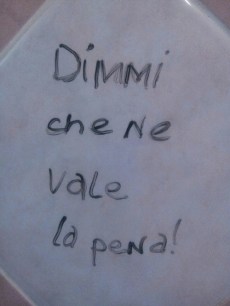 DiMMi
che Ne
vale
la pena!